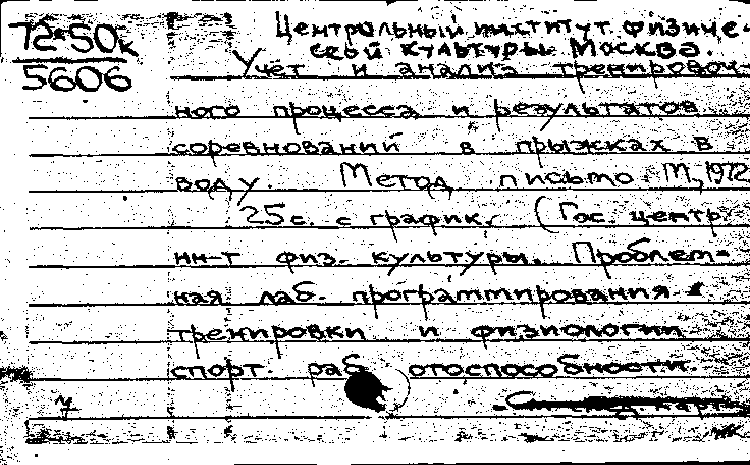 72-50к
5606
Центральный институт физиче-
ской культуры. Москва.
Учёт и анализ тренировоч-
ного процесса и результатов
соревнований в прыжках в
воду. Метод. письмо М., 1972
25 с. с график. (Гос. центр.
ин-т физ. культуры. Проблем-
ная лаб. программирования
тренировки и физиологии
спорт. работоспособности.